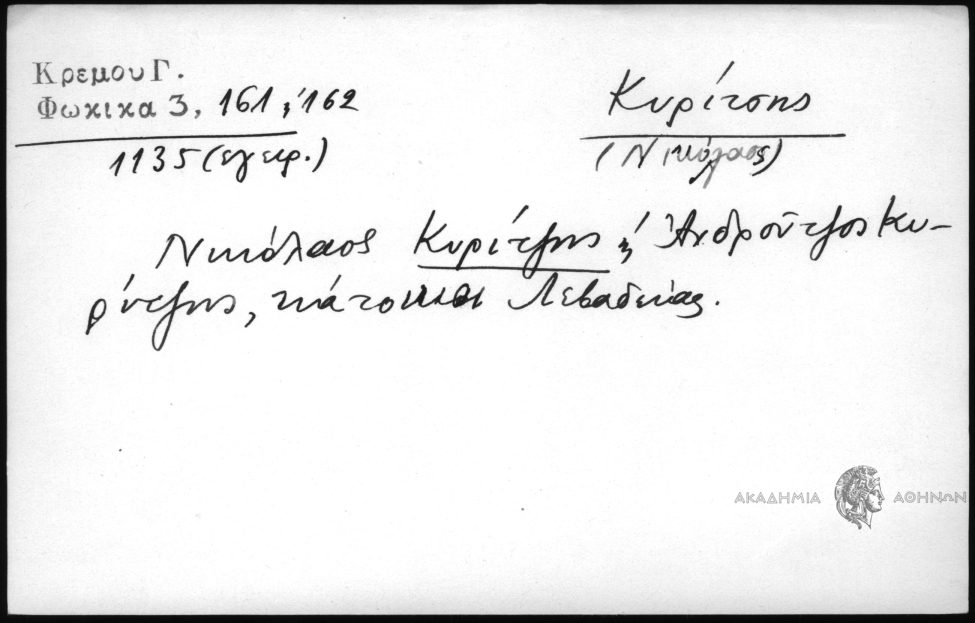 Κρεμου Γ.
Φωκικα 3, 161, 162
1135 (εγειρ.)
Κυρίτσης
(Νικόλαος)
Νικόλαος Κυρίτζης & Ἀνδροῦτζος Κυ-
ρίτζης, κάτοικοι Λεβαδείας.
ΑΚΑΔΗΜΙΑ ΑΘΗΝΩΝ